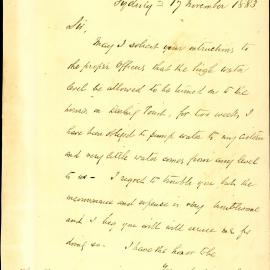 Sydney = 17 November 1883
Sir,
May I solicit your instructions to
the proper Officer that the high water
level be allowed to be turned on to the
houses on Darling Point, for two weeks I
have been obliged to pump water to my cistern
and very little water comes from any level
to us - I regret to trouble you but the
inconvenience and expense is very
and I beg you will excuse me for
doing so - I have the honor to be